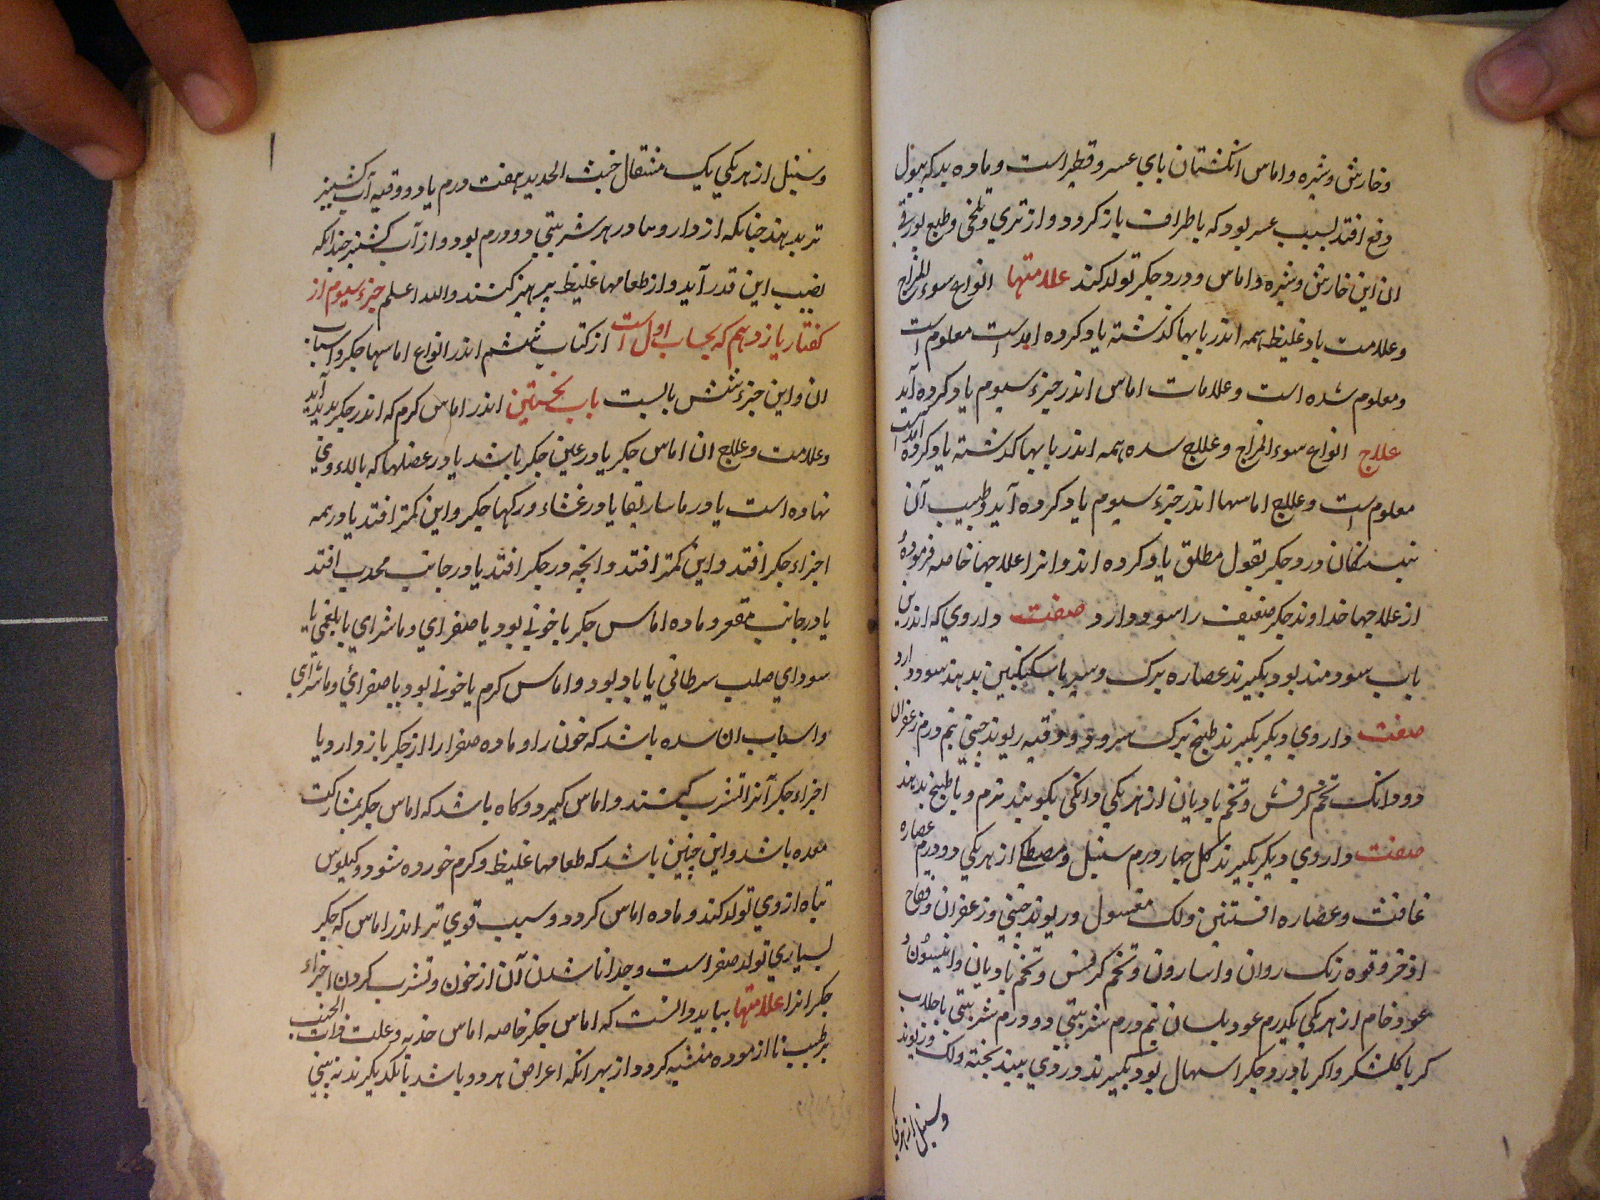 و خارش و بثره و اماس انکشتان بای عسر و قطیر است و ماده بدکه ببول
دفع افتد لسبب عسر بود که باطراف باز کردد و از تیزی و تلخی و طبع بورقی
ان این خارش و بثره و اماس و درد جکر تولد کند علامتها انواع سوء المزاج
و علامت باد غلیظ همه اندر بابها کذشته یاد کرده امدست معلوم است
و معلوم شده است و علامات اماس اندر جزء سیوم یاد کرده آید
علاج انواع سوء المزاج و علاج سده همه اندر بابها کذشته یاد کرده امدست
معلوم است و علاج اماسها اندر جزء سیوم یاد کرده آید و طبیب آن
درد جکر بقول مطلق یاد کرده اند و انرا علاجها خاصه فرموده
از علاجها خداوند جکر ضعیف را سود دارد صفت داروی که اندرین
باب سودمند بود بکیرند عصاره برک و سیر باسکنکبین بدهند سود دارد
صفت داروی دیکر بکیرند طبیخ برک دو وقیه ریوند چینی نیم درم زعفران
دو دانک تخم کرفس و تخم بادیان از هر یکی دانکی بکوبند نرم و با طبیخ بدهند
صفت داروی دیکر بکیرند کل چهار درم سنبل و مصطکی از هریکی دو درم عصاره
غافث و عصاره افسنتین و لک مغسول و ریوند چینی و زعفران و فقاح
اذخر و قوه زنک روان و اسارون و تخم کرفس و تخم بادیان و انیسون و
عود خام از هر یکی یکدرم عود بلسان نیم درم شربتی دو درم شربتی با جلاب
کر با کلشکر و اکر با درد جکر اسهال بود بکیرند و روی بیند پخته و لک و ریوند
و سنبل از هریکی
و سنبل از هریکی یک مثقال خبث الحدید هفت درم با دو وقیه آب کشنیز
تر بدهند چنانکه از داروها در هر شربتی دو درم بود و از آب کشنیز چندانکه
نصیب این قدر آید و از طعامها غلیظ پرهیز کنند و الله اعلم جزء سیوم از
کفتار یازدهم که بحساب اول است از کتاب ششم اندر انواع اماسها جکر و اسباب
ان و این جزء شش بابست باب نخستین اندر اماس کرم که اندر جکر پدید آید
و علامت و علاج ان اماس جکر یا در عین جکر باشد یا در عضلها که بالاء وی
نهاده است یا در ماساریقا یا در غشاء و رکها جکر و این کمتر افتد یا در همه
اجزاء جکر افتد و این کمتر افتد و انچه در جکر افتد یا در جانب محدب افتد
یا در جانب مقعر و ماده اماس جکر یا خونی بود یا صفرای و ماشرای یا بلغمی یا
سودای صلب سرطانی یا باد بود و اماس کرم یا خونی بود یا صفرائ و ماشرای
و اسباب ان سده باشد که خون را و ماده صفرا را از جکر باز دارد و یا
اجزاء جکر آنرا تشرب کنند و اماس کیرد و کاه باشد که اماس جکر بمشارکت
معده باشد و این چنین باشد که طعامها غلیظ و کرم خورده شود و کیلوس
تباه از وی تولد کند و ماده اماس کردد و سبب قوی تر اندر اماس که جکر
بسیاری تولد صفرا ست و جدا ناشدن آن از خون و تشرب کردن اجزاء
جکر انرا علامتها بباید دانست که اماس جکر خاصه اماس حدبه و علت ذات الجنب
بر طبیب ناازموده مشتبه کردد از بهر انکه اعراض هر دو باشد بایکدیکر نزدیک بینی